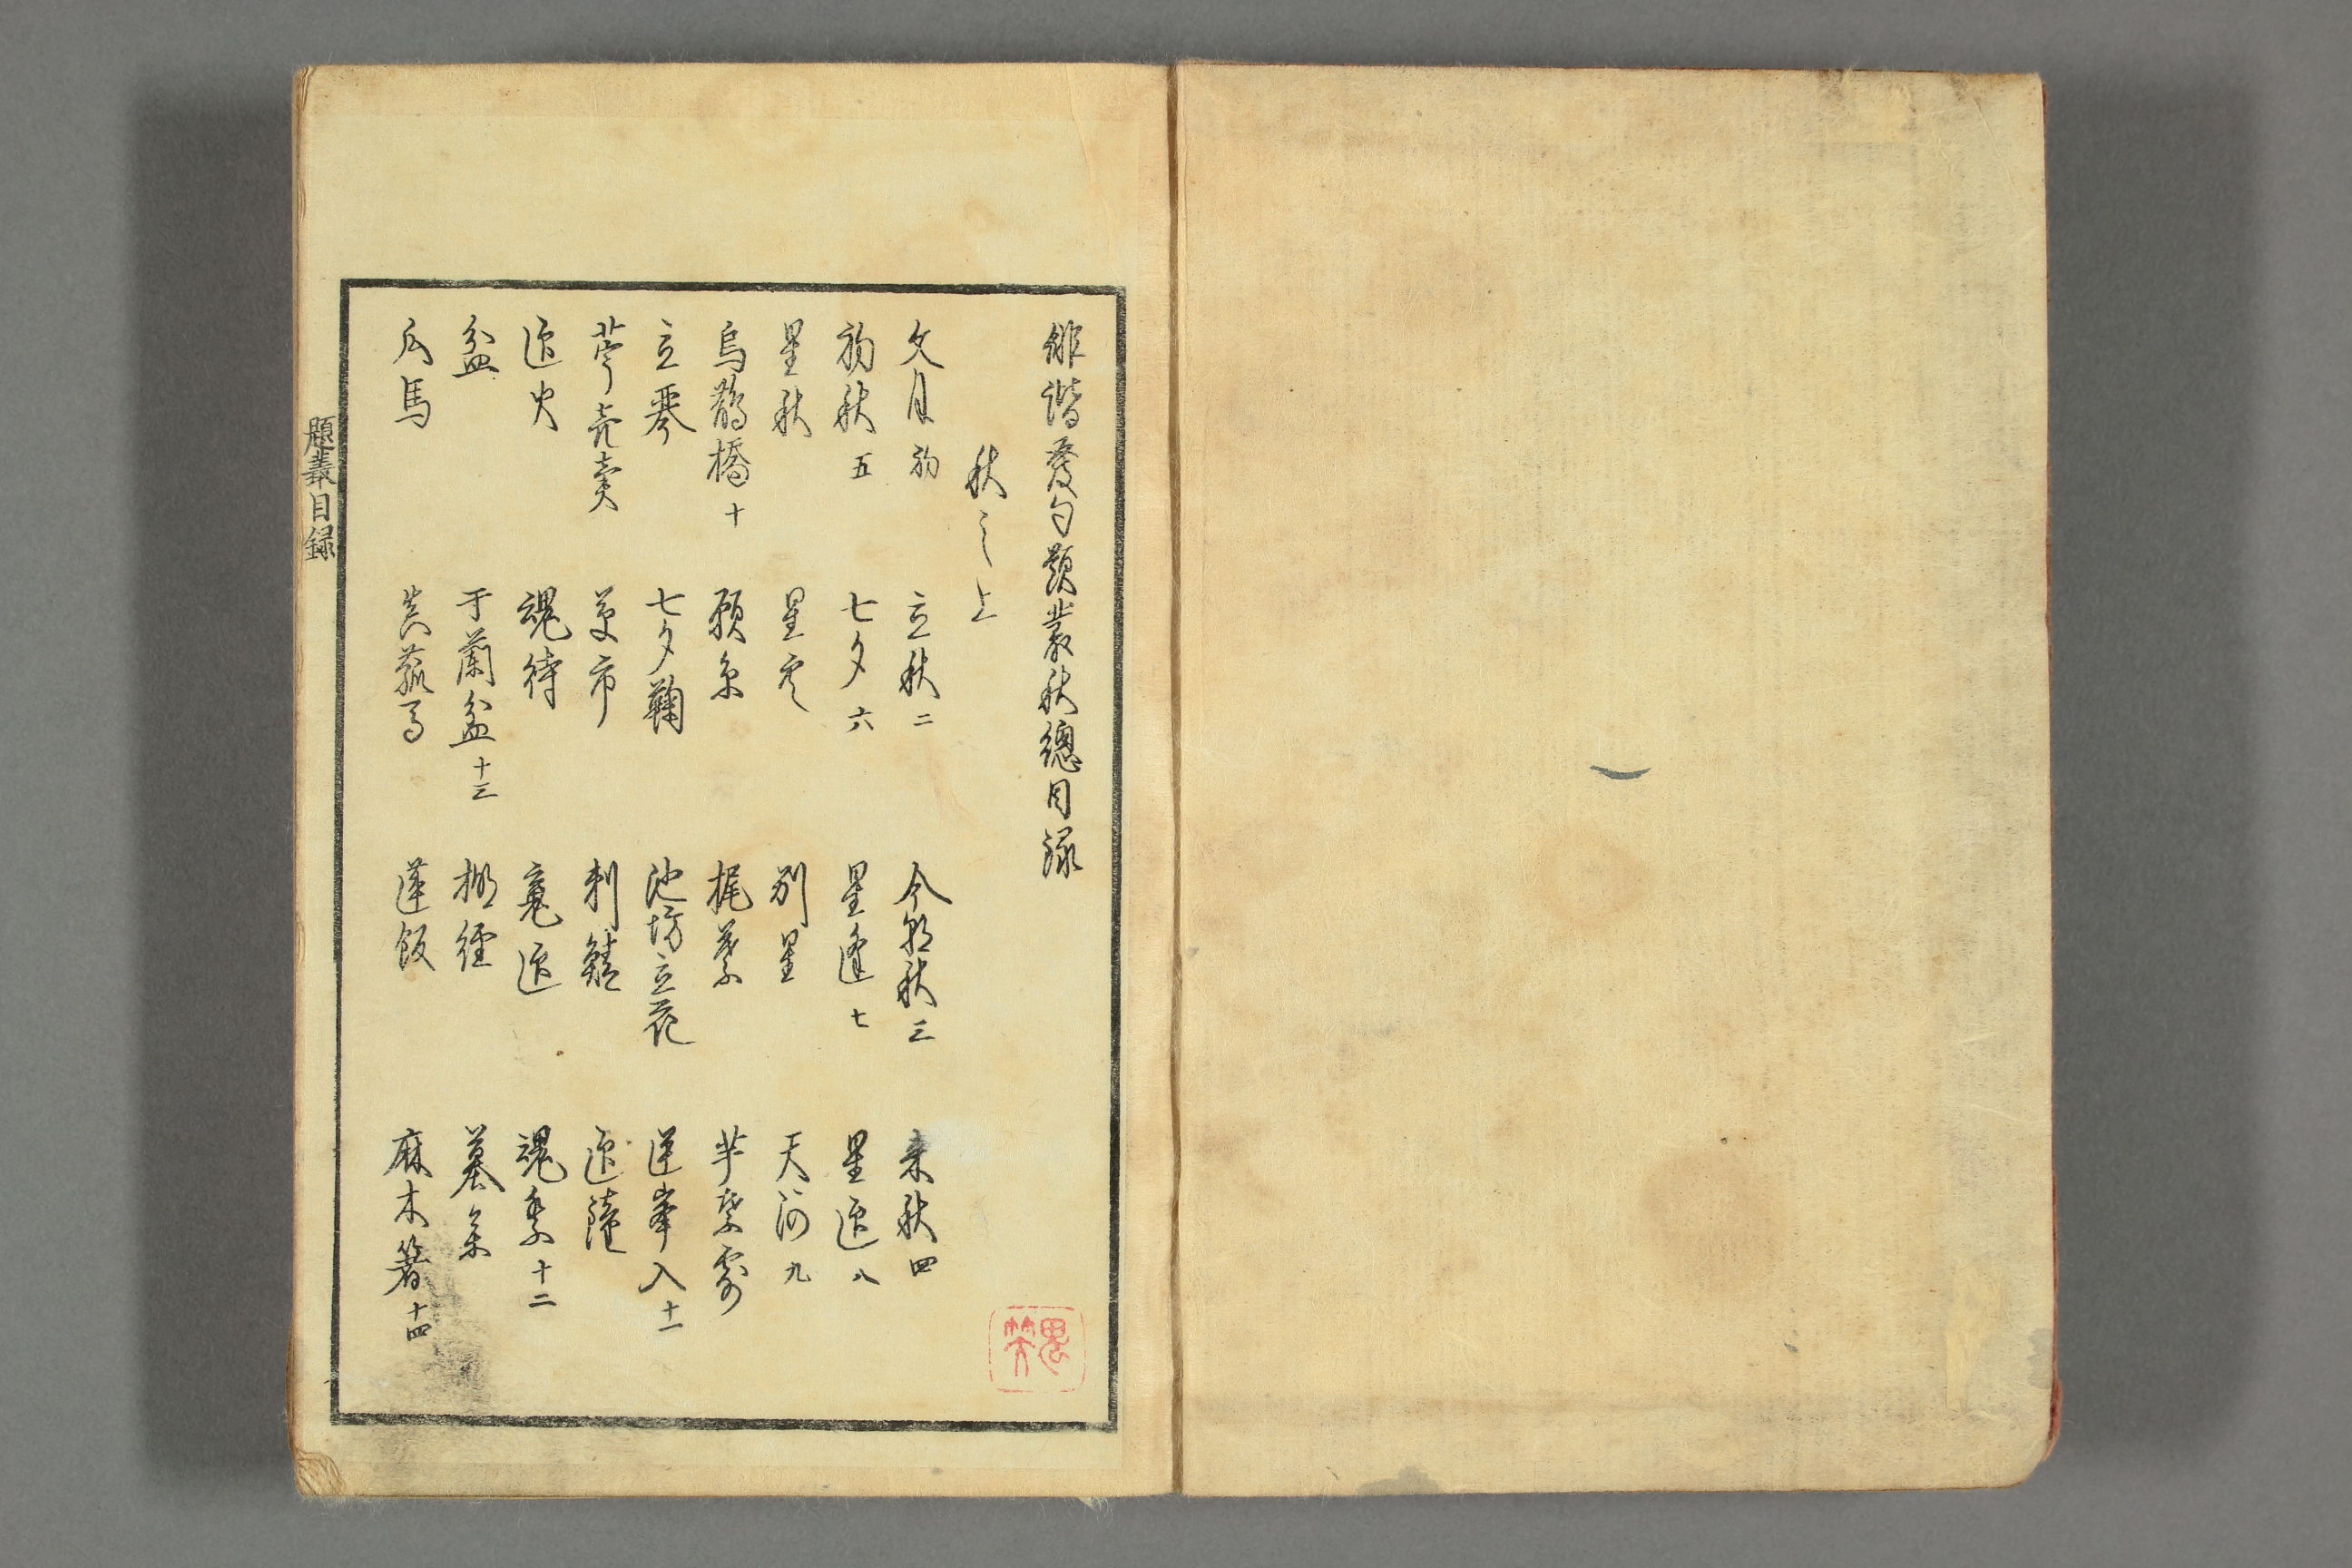 俳諧發句題叢秋總目録
秋之上
文月 初 立秋 二 今朝秋 三 来秋 四
初秋 五 七夕 六 星逢 七 星迎 八
星秋 別星 天河 九
烏鵲橋 十 願糸 梶葉 芋葉露
立琴 七夕鞠 池坊立花 逆峯入 十一
苧売賣 草市 刺鯖 迎鐘
迎火 魂待 竃迎 魂祭 十二
盆 于蘭盆 十三 棚經 墓参
瓜馬 真菰馬 蓮飯 麻木箸 十四
題叢目録